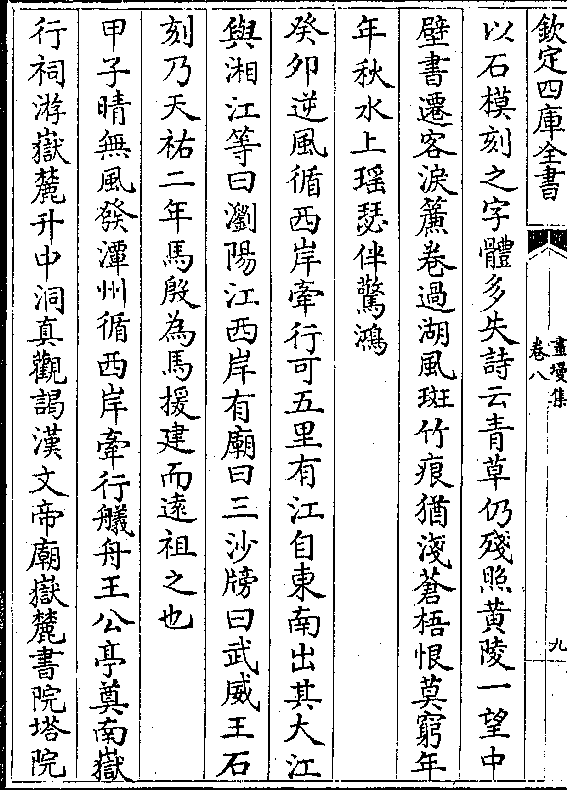 欽定四庫全書
畫墁集
卷八
九
以石模刻之字體多失詩云青草仍殘照黃陵一望中
壁書遷客淚簾卷過湖風斑竹痕猶淺蒼梧恨莫窮年
年秋水上瑶瑟伴驚鴻
癸卯逆風循西岸牽行可五里有江自東南出其大江
與湘江等曰瀏陽江西岸有廟曰三沙牓曰武威王石
刻乃天祐二年馬殷為馬援建而遠祖之也
甲子晴無風發潭州循西岸牽行艤舟王公亭奠南嶽
行祠游嶽麓升中洞真觀謁漢文帝廟嶽麓書院塔院